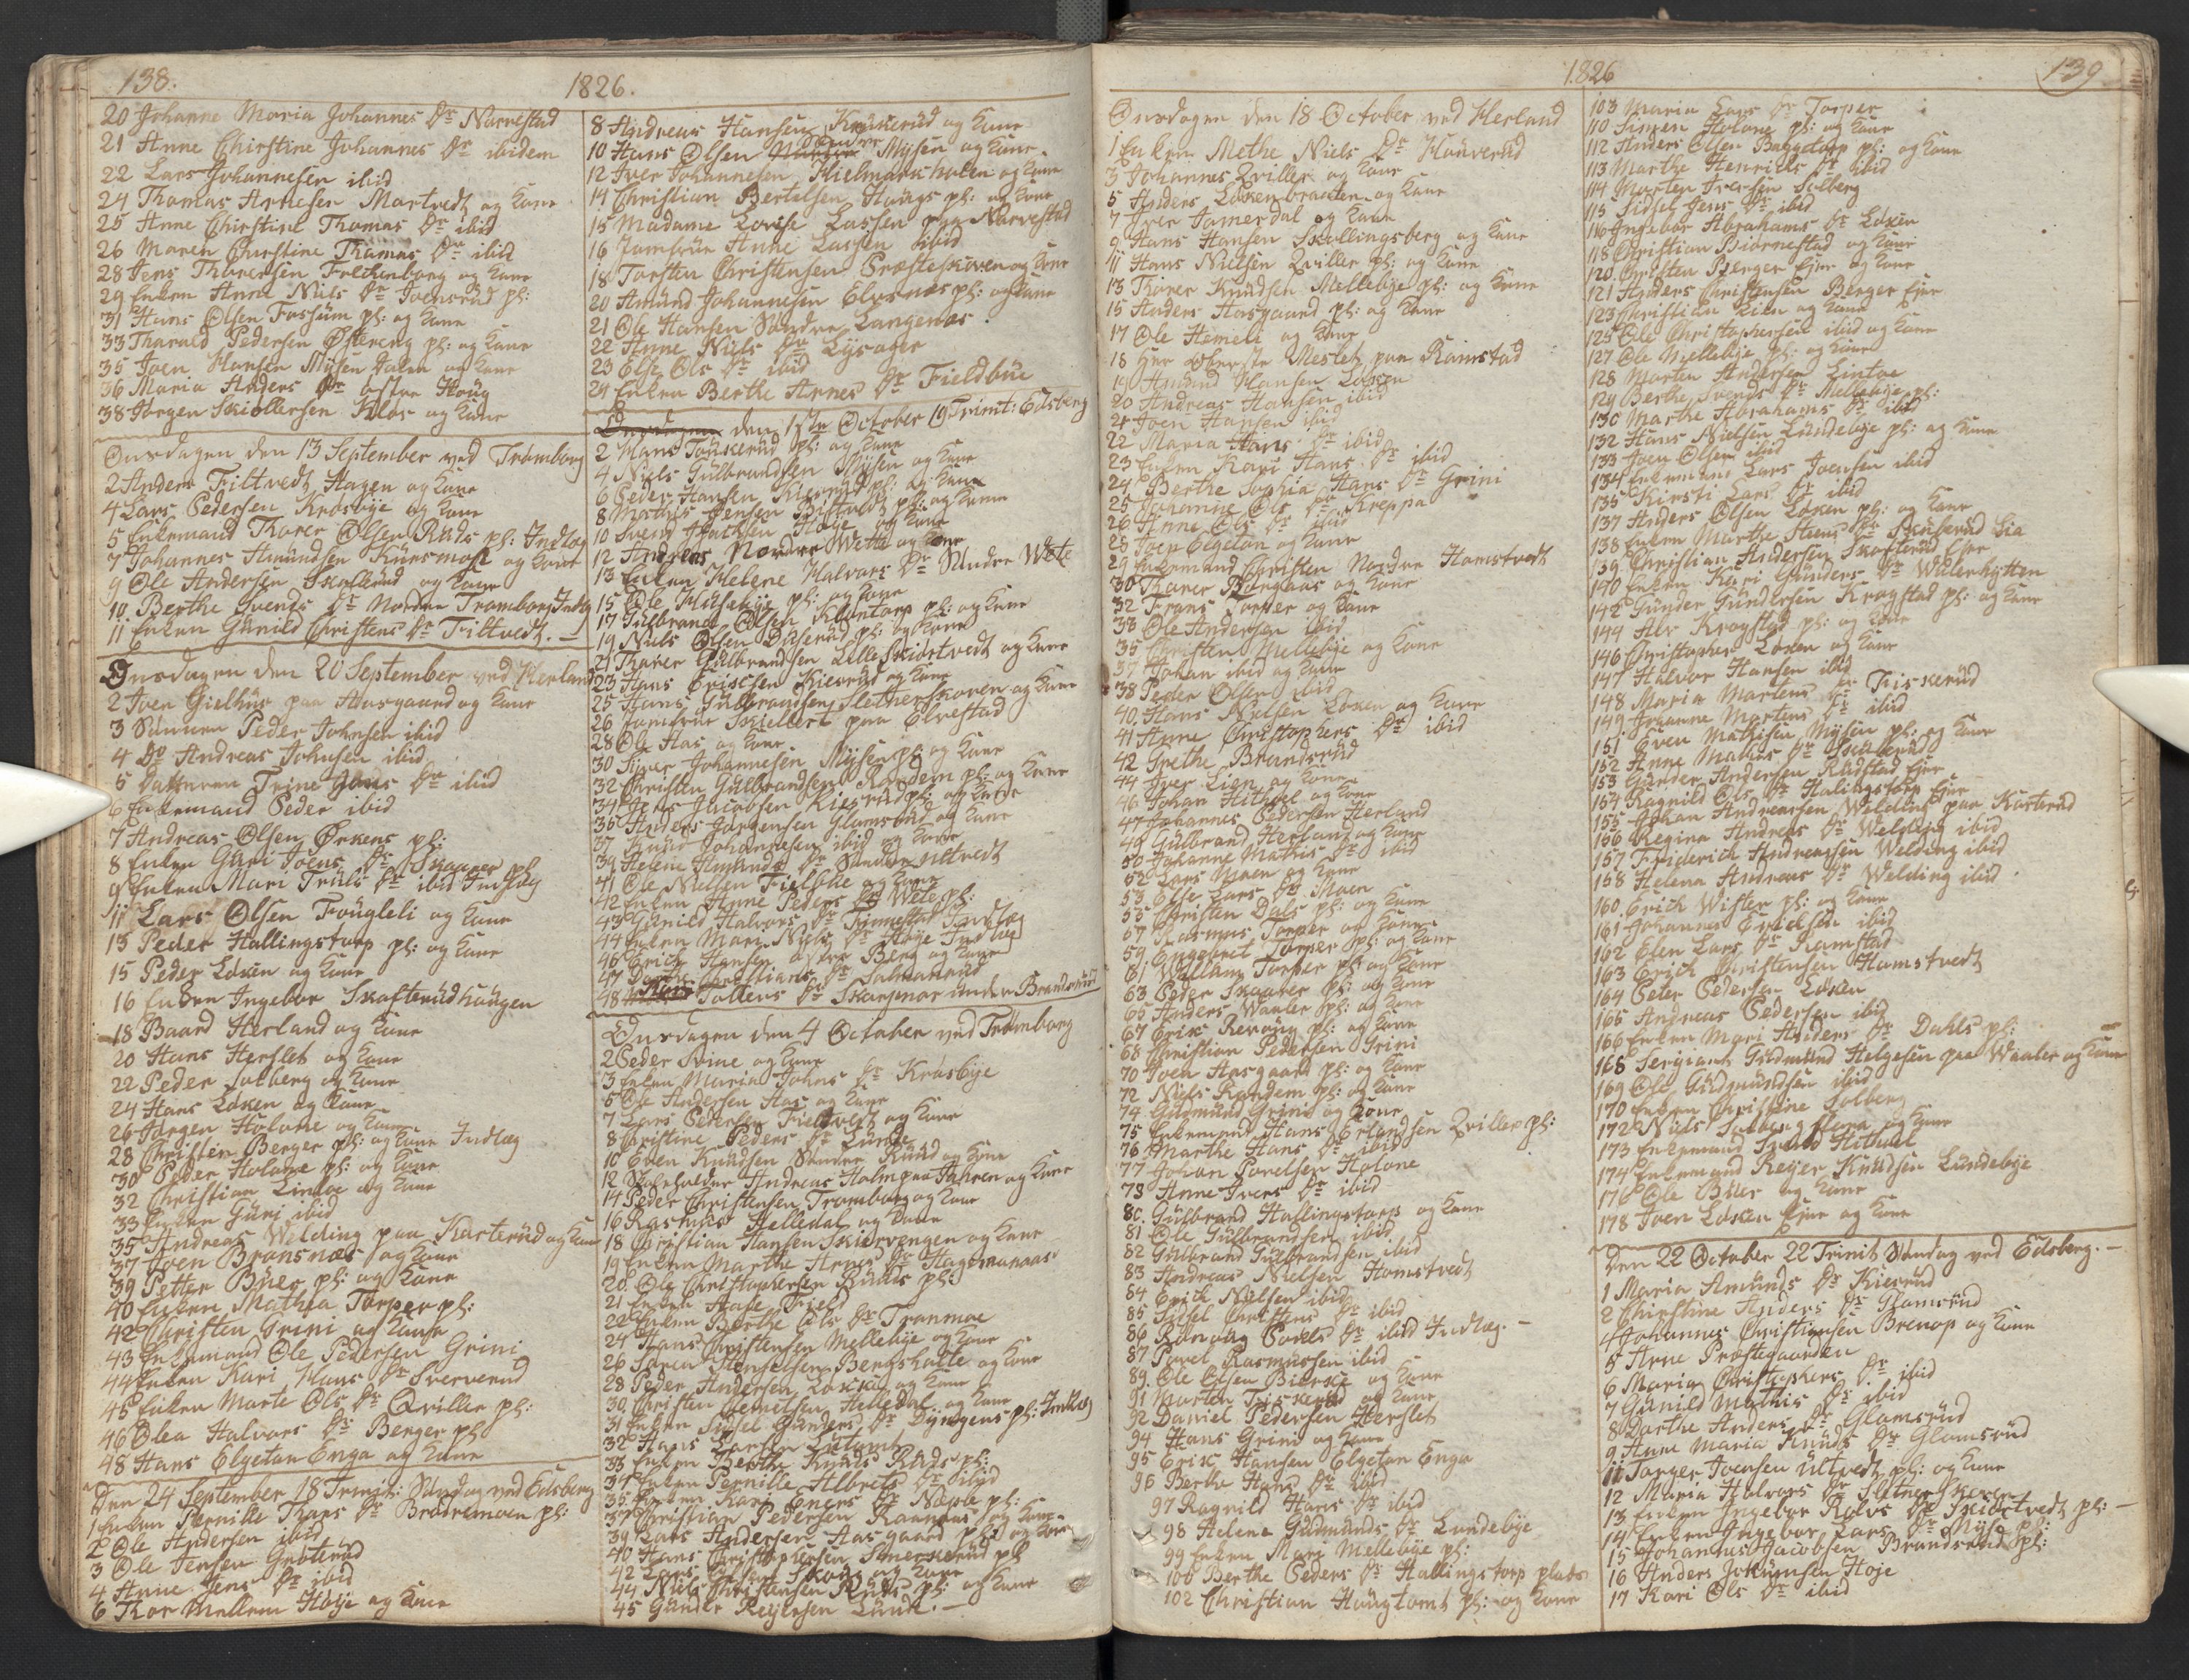 138.
1826.
20 Johanne Maria Johannes Dr Narvestad
21 Anne Christine Johannes Dr ibidem
22 Lars Johannesen ibid
24 Thomas Arnesen Martvedt og Kone
25 Anne Christine Thomas Dr ibid
26 Maren Christine Thomas Dr ibid
28 Jens Thorersen Frechenborg og Kone
29 Enken Anne Niels Dr Joensrud pl:
31 Hans Olsen Fossum pl: og Kone
33 Tharald Pedersen Østereng pl: og Kone
35 Joen Hansen Mysen Dalen og Kone
36 Maria Anders Dr østre Houg
38 Jørgen Skiøllersen Kilas og Kone
Onsdagen den 13 September ved Trømborg
2 Anders Filtvedt Hagen og Kone
4 Lars Pedersen Krosbye og Kone
5 Enkemand Thorer Olsen Ruds pl: Indlæg
7 Johannes Amundsen Kunsmoe og Kone
9 Ole Andersen Skofterud og Kone
10 Berthe Svends Dr Nordre Trømborg Indlæg
11 Enken Gunild Christens Dr Filtvedt.
Onsdagen den 20 September ved Herland
2 Joen Gielhus paa Aasgaard og Kone
3 Sønnen Peder Johnsen ibid
4 Do Andreas Johnsen ibid
5 Datteren Trine Johns Dr ibid
6 Enkemand Peder ibid
7 Andreas Olsen Ørkens pl:
8 Enken Guri Joens Dr Skaarer pl
9 Enken Mari Truls Dr ibid Indlæg
11 Lars Olsen Fougleli og Kone
13 Peder Hallingstorp pl: og Kone
15 Peder Løken og Kone
16 Enken Ingebor Skofterudhaugen
18 Baard Herland og Kone
20 Hans Herslet og Kone
22 Peder Solberg og Kone
24 Hans Løken og Kone
26 Jørgen Holone og Kone
28 Christen Berger pl: og Kone Indlæg
30 Peder Holone pl: og Kone
32 Christian Lintoe og Kone
33 Enken Guri ibid
35 Andreas Welding paa Karterud og Kone
37 Joen Bronsnæs og Kone
39 Petter Buer pl: og Kone
40 Enken Mathea Torper pl:
42 Christen Grini og Kone
43 Enkemand Ole Pedersen Grini
44 Enken Kari Hans Dr Sververud
45 Enken Marte Ols Dr Qviller pl:
46 Olea Halvors Dr Berger pl
48 Hans Elgetun Enga og Kone
Den 24 September 18 Trinit: Søndag ved Edsberg
1 Enken Pernille Thors Dr Brødremoen pl:
2 Ole Andersen ibid
3 Ole Jensen Gubterud
4 Anne Jens Dr ibid
6 Thor Mellem Høye og Kone
8 Andreas Hansen Kruserud og Kone
10 Hans Olsen Søndre Mysen og Kone
12 Iver Johannesen Hielmarkholen og Kone
14 Christian Bertelsen Hougs pl: og Kone
15 Madame Lovise Lassen paa Narvestad
16 Jomfrue Anne Lassen ibid
18 Torsten Christensen Præsteskoven og Kone
20 Amund Johannesen Elvenæs pl: og Kone
21 Ole Hansen Søndre Langenæs
22 Anne Niels Dr Lysager
23 Else Ols Dr ibid
24 Enken Berthe Arnes Dr Fieldbue
den 1ste October 19 Trinit: Edsberg
2 Hans Touserud pl: og Kone
4 Niels Gulbrandsen Mysen og Kone
6 Peder Hansen Kierrud pl: og Kone
8 Mathis Jensen Bistvedt pl: og Kone
10 Svend Høye og Kone
12 Andreas Nordre Wette og Kone
13 Enken Helene Halvors Dr Søndre Wete
15 Ole Husebye pl: og Kone
17 Gulbrand Olsen Kløntorp pl: og Kone
19 Niels Olsen Duserud pl: og Kone
21 Thorer Gulbrandsen Lille Skiøltvedt og Kone
23 Hans Ericksen Kierrud og Kone
25 Hans Gulbrandsen Sletnerskoven og Kone
26 Jomfrue Skielbert paa Elvestad
28 Ole Aas og Kone
30 Syver Johannesen Mysen pl: og Kone
32 Christen Gulbrandsen Randem pl: og Kone
34 Jens Jacobsen Kierrud pl: og Kone
36 Anders Jørgensen Glomsrud og Kone
37 Knud Johannesen ibid og Kone
39 Helene Amunds Dr Søndre Ultvedt
41 Ole Nielsen Fielshe og Kone
42 Enken Anne Peders Dr Wete pl:
43 Gunild Halvors Dr Finnestad Indlæg
44 Enken Mari Niels Dr Høye Indlæg
46 Erich Hansen østre Berg og Kone
47 Dorthe Christians Dr Salmonrud
48 Tollens Dr Skarpnor under Brandsrud
Onsdagen den 4 October ved Trømborg
2 Peder Svine og Kone
3 Enken Maria Johns Dr Krosbye
5 Ole Andersen Aas og Kone
7 Lars Pedersen Fieltvedt og Kone
8 Christine Peders Dr Lunde
10 Even Knudsen Søndre Ruud og Kone
12 Skoleholder Andreas Holm paa Fahren og Kone
14 Peder Christensen Trømborg og Kone
16 Rasmus Helledal og Kone
18 Christian Hansen Skiervengen og Kone
19 Enken Marthe Arnes Dr Hagemanaas
20 Ole Christophersen Ruds pl:
21 Enken Aase Field
22 Enken Berthe Ols Dr Tranmoe
24 Hans Christensen Mellebye og Kone
26 Søren Bergsholte og Kone
28 Peder Andersen Løcke og Kone
30 Christen Helledal og Kone
31 Enken Sidsel Gunders Dr Dyngens pl: Indlæg
32 Hans Larsen
33 Enken Berthe Knuds Ruds pl:
34 Enken Pernille Albrets Dr ibid
35 Enken Kari Eners Dr Næple pl:
37 Christian Pedersen Raanaas og Kone
39 Lars Andersen Aasgaard pl: og Kone
40 Hans Christophersen Smerserud pl
42 Lars Skoug og Kone
44 Niels Christensen Ruds pl: og Kone
45 Gunder Reyersen Lund.
1826
139
Onsdagen den 18 October ved Herland
1 Enken Methe Niels Dr Houverud
3 Johannes Qviller og Kone
5 Anders Løkenbraaten og Kone
7 Iver Jomerdal og Kone
9 Hans Hansen Skollingsberg og Kone
11 Hans Nielsen Qviller pl: og Kone
13 Thorer Knudsen Mellebye pl: og Kone
15 Anders Aasgaard pl: og Kone
17 Ole Hemeli og Kone
18 Herr Meslet paa Ramstad
19 Amund Hansen Løken
20 Andreas Hansen ibid
21 Joen Hansen ibid
22 Maria Hans Dr ibid
23 Enken Kari Hans Dr ibid
24 Berthe Sophia Hans Dr Grini
25 Johanne Ols Dr Kreppa
26 Anne Ols Dr ibid
28 Joen Elgetun og Kone
29 Enkemand Christen Nordre Homstvedt
30 Thorer Borgaas og Kone
32 Frans Torper og Kone
33 Ole Andersen ibid
35 Christen Mellebye og Kone
37 Johan ibid og Kone
38 Peder Olsen ibid
40 Hans Nielsen Løken og Kone
41 Anne Christophers Dr ibid
42 Grethe Brandsrud
44 Iver Lien og Kone
46 Johan Hithuel og Kone
47 Johannes Pedersen Herland
49 Gulbrand Herland og Kone
50 Johanne Mathis Dr ibid
52 Lars Moen og Kone
53 Else Lars Dr Moen
55 Christen Dals pl: og Kone
57 Rasmus Torper og Kone
59 Engebret Torper pl: og Kone
61 William Torper pl: og Kone
63 Peder Skaarer pl: og Kone
65 Anders Waaler pl: og Kone
67 Erik Revoug pl: og Kone
68 Christian Pedersen Grini
70 Joen Aasgaard pl: og Kone
72 Niels Randem pl: og Kone
74 Gudmund Grini og Kone
75 Enkemand Hans Erlandsen Qviller pl:
76 Marthe Hans Dr ibid
77 Johan Povelsen Holone
78 Anne Ivers Dr ibid
80 Gulbrand Hallingstorp og Kone
81 Ole Gulbrandsen ibid
82 Gulbrand Gulbrandsen ibid
83 Andreas Nielsen Homstvedt
84 Erich Nielsen ibid
85 Sidsel Christens Dr ibid
86 Ranoug Povels Dr ibid Indlæg.
87 Povel Rasmussen ibid
89 Ole Olsen Bierke og Kone
91 Morten Fiskerud og Kone
92 Daniel Pedersen Herslet
94 Hans Grini og Kone
95 Eric Hansen Elgetun Enga
96 Berthe Hans Dr ibid
97 Ragnild Hans Dr ibid
98 Helene Gudmunds Dr Lundebye
99 Enken Mari Mellebye pl:
100 Berthe Peders Dr Hallingstorp plads
102 Christian Haugtomt pl: og Kone
103 Maria Lars Dr Torper
110 Simen Holone pl: og Kone
112 Anders Olsen Baggetorp pl: og Kone
113 Marthe Henriks Dr ibid
114 Morten Iversen Solberg
115 Sidsel Jens Dr ibid
116 Ingebor Abrahams Dr Løken
118 Christian Biørnestad og Kone
120 Christen Berger Ejer og Kone
121 Anders Christensen Berger Ejer
123 Christian Lien og Kone
125 Ole Christophersen ibid og Kone
127 Ole Mellebye pl: og Kone
128 Morten Andersen Lintoe
129 Berthe Svends Dr Mellebye pl:
130 Marthe Abrahams Dr ibid
132 Hans Nielsen Lundebye pl: og Kone
133 Joen Olsen ibid
134 Enkemand Lars Joensen ibid
135 Kirsti Lars Dr ibid
137 Anders Olsen Løken pl: og Kone
138 Enken Marthe Hans Dr Skuberud Lia
139 Christian Andersen Skofterud Ejer
140 Enken Kari Gunders Dr Walerhytten
142 Gunder Gundersen Krogstad pl: og Kone
144 Alv Krogstad pl: og Kone
146 Christopher Løken og Kone
147 Halvor Hansen ibid
148 Maria Martens Dr Fiskerud
149 Johanne Mortens Dr ibid
151 Even Mathisen Mysen pl: og Kone
152 Anne Mathis Dr
153 Gunder Andersen Rudstad Ejer
154 Ragnild Ols Dr Halingstorp Ejer
155 Johan Andreassen Welding paa Karterud
156 Regina Andreas Dr Welding ibid
157 Friderich Andreassen Welding ibid
158 Helena Andreas Dr Welding ibid.
160 Erich Wister pl: og Kone
161 Johannes Ericksen ibid
162 Elen Lars Dr Ramstad
163 Erich Christensen Homstvedt
164 Peter Pedersen Løken
165 Andreas Pedersen ibid
166 Enken Mari Anders Dr Dahls pl:
168 Sergiant Gudmund Helgesen paa Waaler og Kone
169 Ole Gudmundsen ibid
170 Enken Christine Solberg
172 Niels Solberg og Kone
173 Enkemand Svend Hithuel
174 Enkemand Reyer Knudsen Lundebye
176 Ole Buer og Kone
178 Joen Løken Ejer og Kone
Den 22 October 22 Trinit Søndag ved Edsberg.
1 Maria Amunds Dr Kierrud
2 Christine Anders Dr Glomsrud
4 Johannes Christiansen Brenop og Kone
5 Arne Præstegaarden
6 Maria Christophers Dr ibid
7 Gunild Mathis Dr ibid
8 Dorthe Anders Dr Glomsrud
9 Anne Maria Knuds Dr Glomsrud
11 Torger Joensen Ultvedt pl: og Kone
12 Maria Halvors Dr Sletner Skoven
13 Enken Ingebor Rolvs Dr Skiøltvedt pl:
14 Enken Ingebor Lars Dr Mysen pl:
15 Johannes Jacobsen Brandsrud pl:
16 Anders Høje
17 Kari Ols Dr ibid